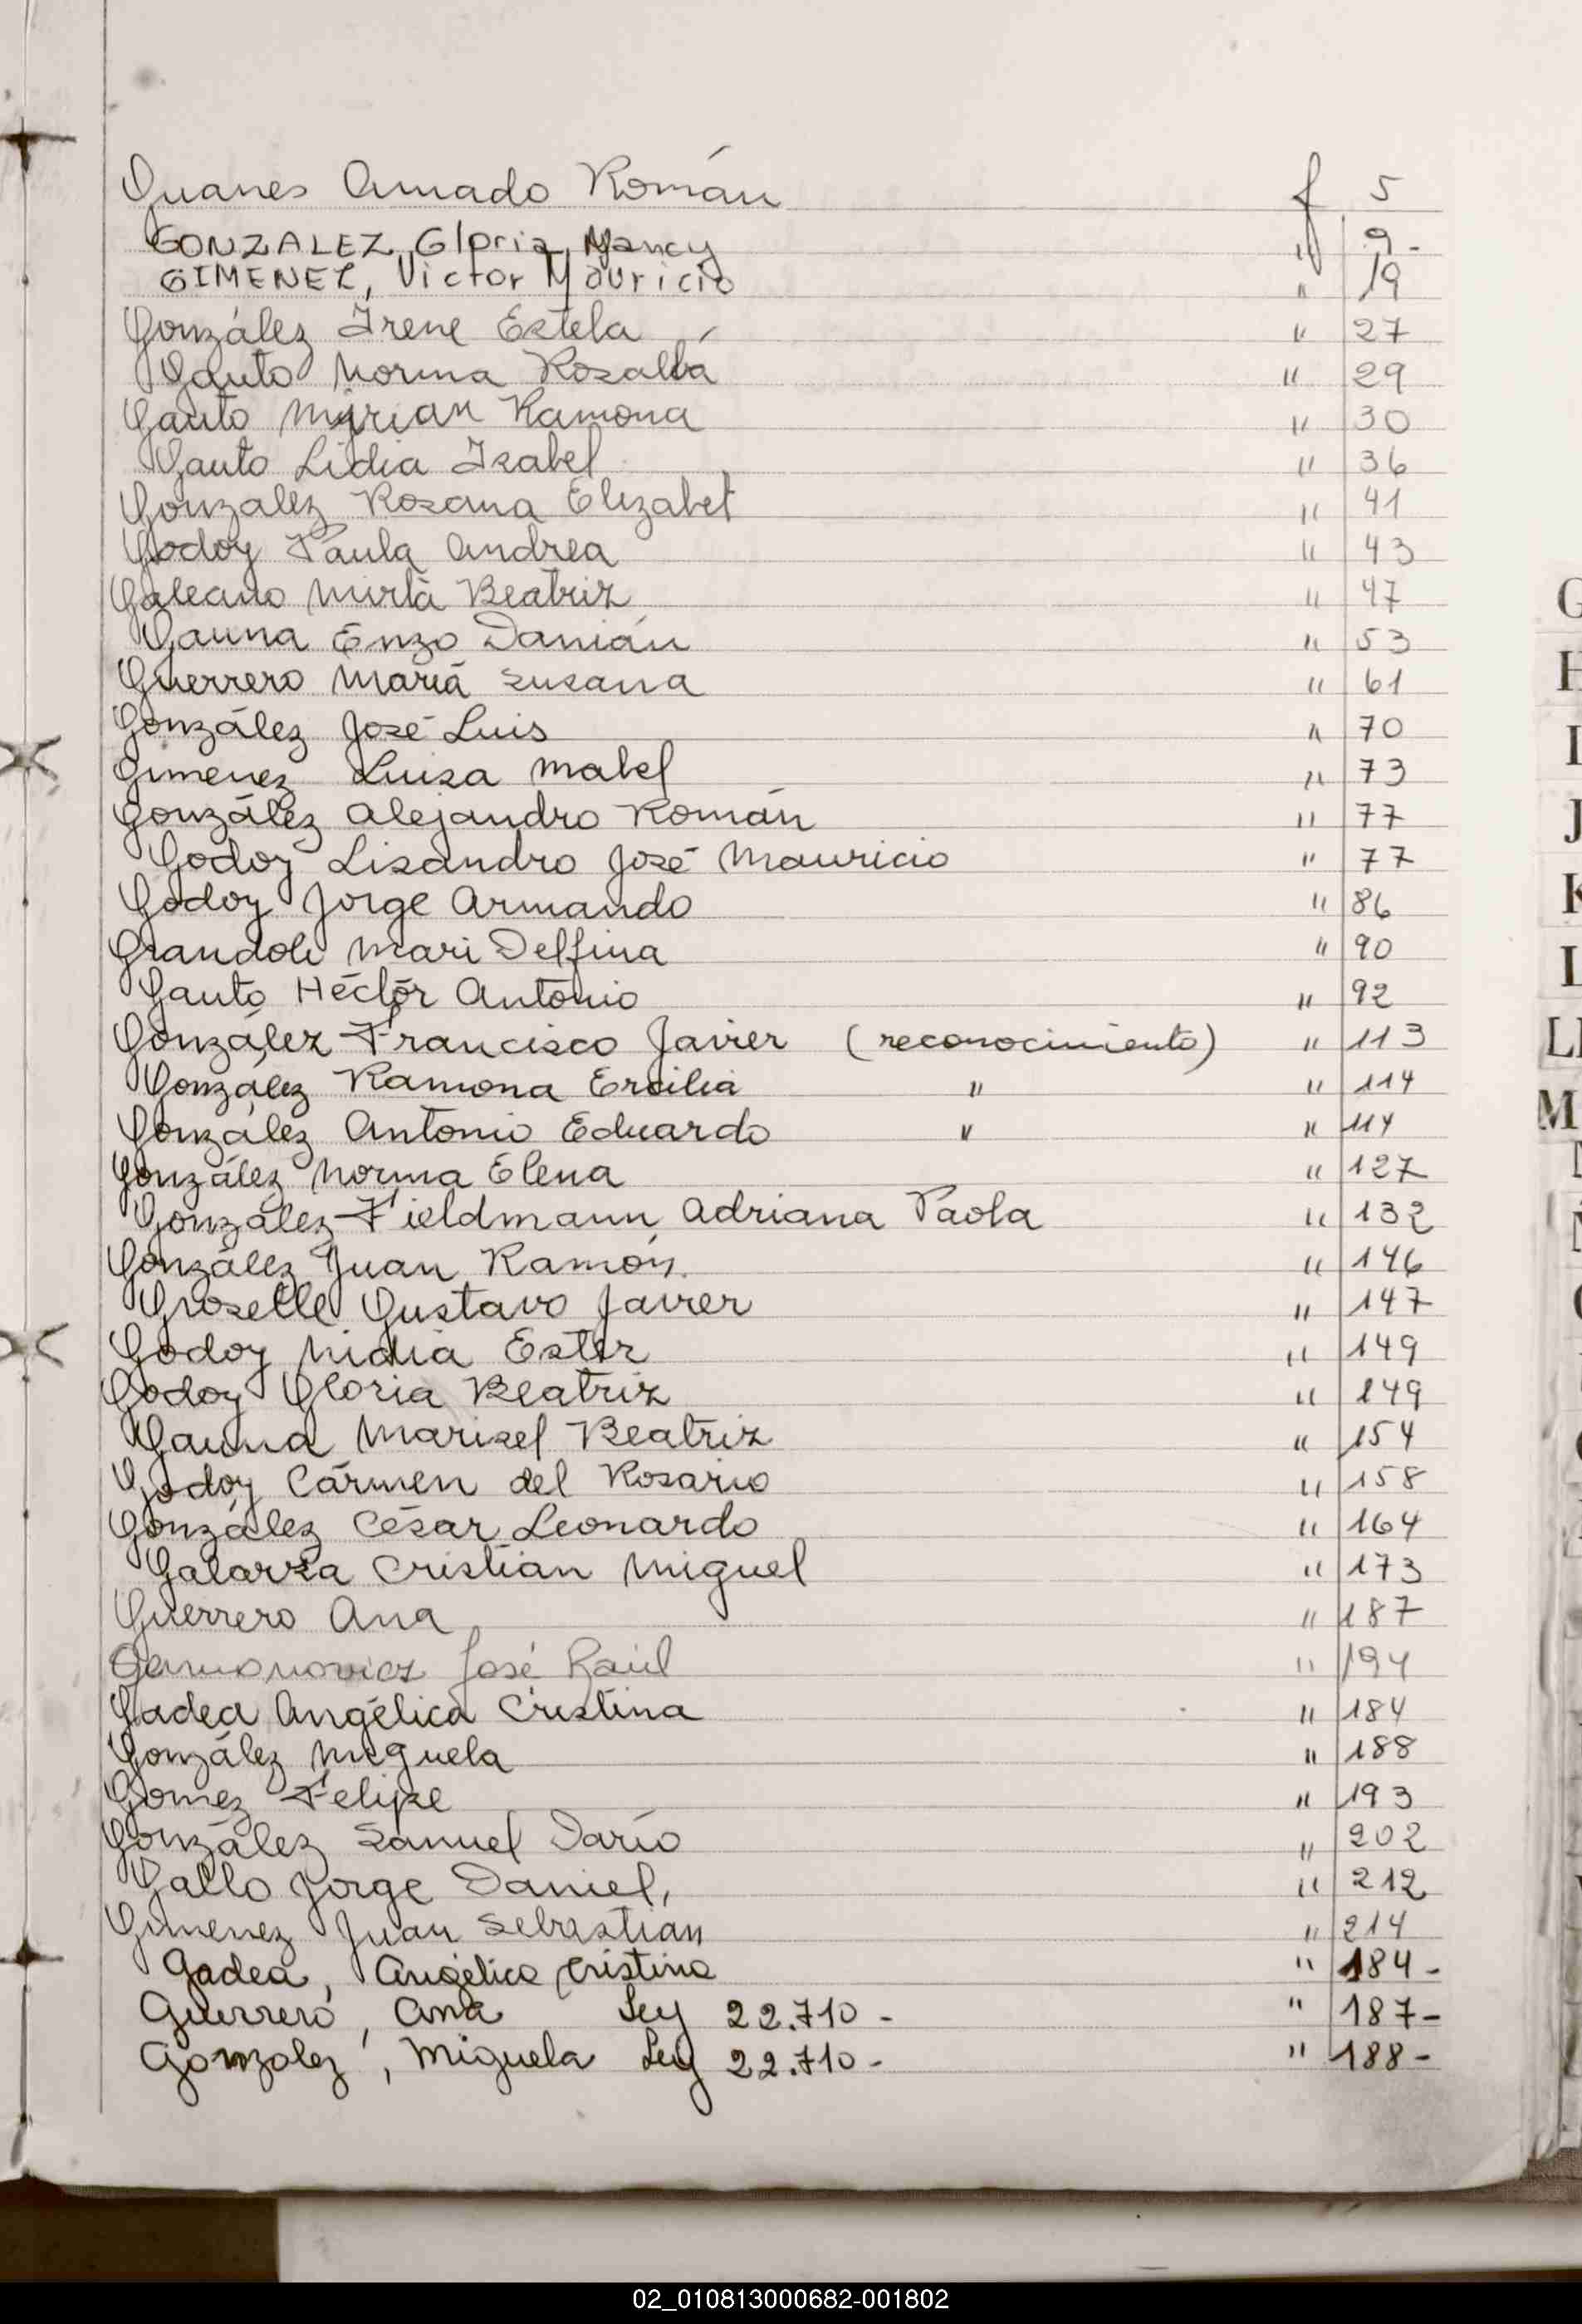 Guanes Amado Román f 5
GONZALEZ, Gloria Nancy " 9-
GIMENEZ, Victor Mauricio " 19
González Irene Estela " 27
Gauto Norma Rosalba " 29
Gauto Myrian Ramona " 30
Gauto Lidia Isabel " 36
Gonzalez Rosana Elizabet " 41
Godoy Paula Andrea " 43
Galeano Mirta Beatriz " 47
Gauna Enzo Damián " 53
Guerrero María Susana " 61
González José Luis " 70
Gimenez Luisa Mabel " 73
González Alejandro Román " 77
Godoy Lisandro José Mauricio " 77
Godoy Jorge Armando " 86
Grandoli Mari Delfina " 90
Gauto Héctor Antonio " 92
González Francisco Javier (reconocimiento) " 113
González Ramona Ercilia " " 114
González Antonio Eduardo " " 114
González Norma Elena " 127
González Fieldmann Adriana Paola " 132
González Juan Ramón " 146
Groselle Gustavo Javier " 147
Godoy Nidia Ester " 149
Godoy Gloria Beatriz " 149
Gauna Marisel Beatriz " 154
Godoy Cármen del Rosario " 158
González César Leonardo " 164
Galarza Cristian Miguel " 173
Guerrero Ana " 187
José Raúl " 194
Gadea Angélica Cristina " 184
González Miguela " 188
Gomez Felipe " 193
González Samuel Darío " 202
Gallo Jorge Daniel, " 212
Gimenez Juan Sebastián " 214
Gadea, Angélica Cristina " 184-
Guerrero, Ana Ley 22.710- " 187-
Gonzalez, Miguela Ley 22.710- " 188-
G
H
I
J
K
L
LL
M
02_010813000682-001802